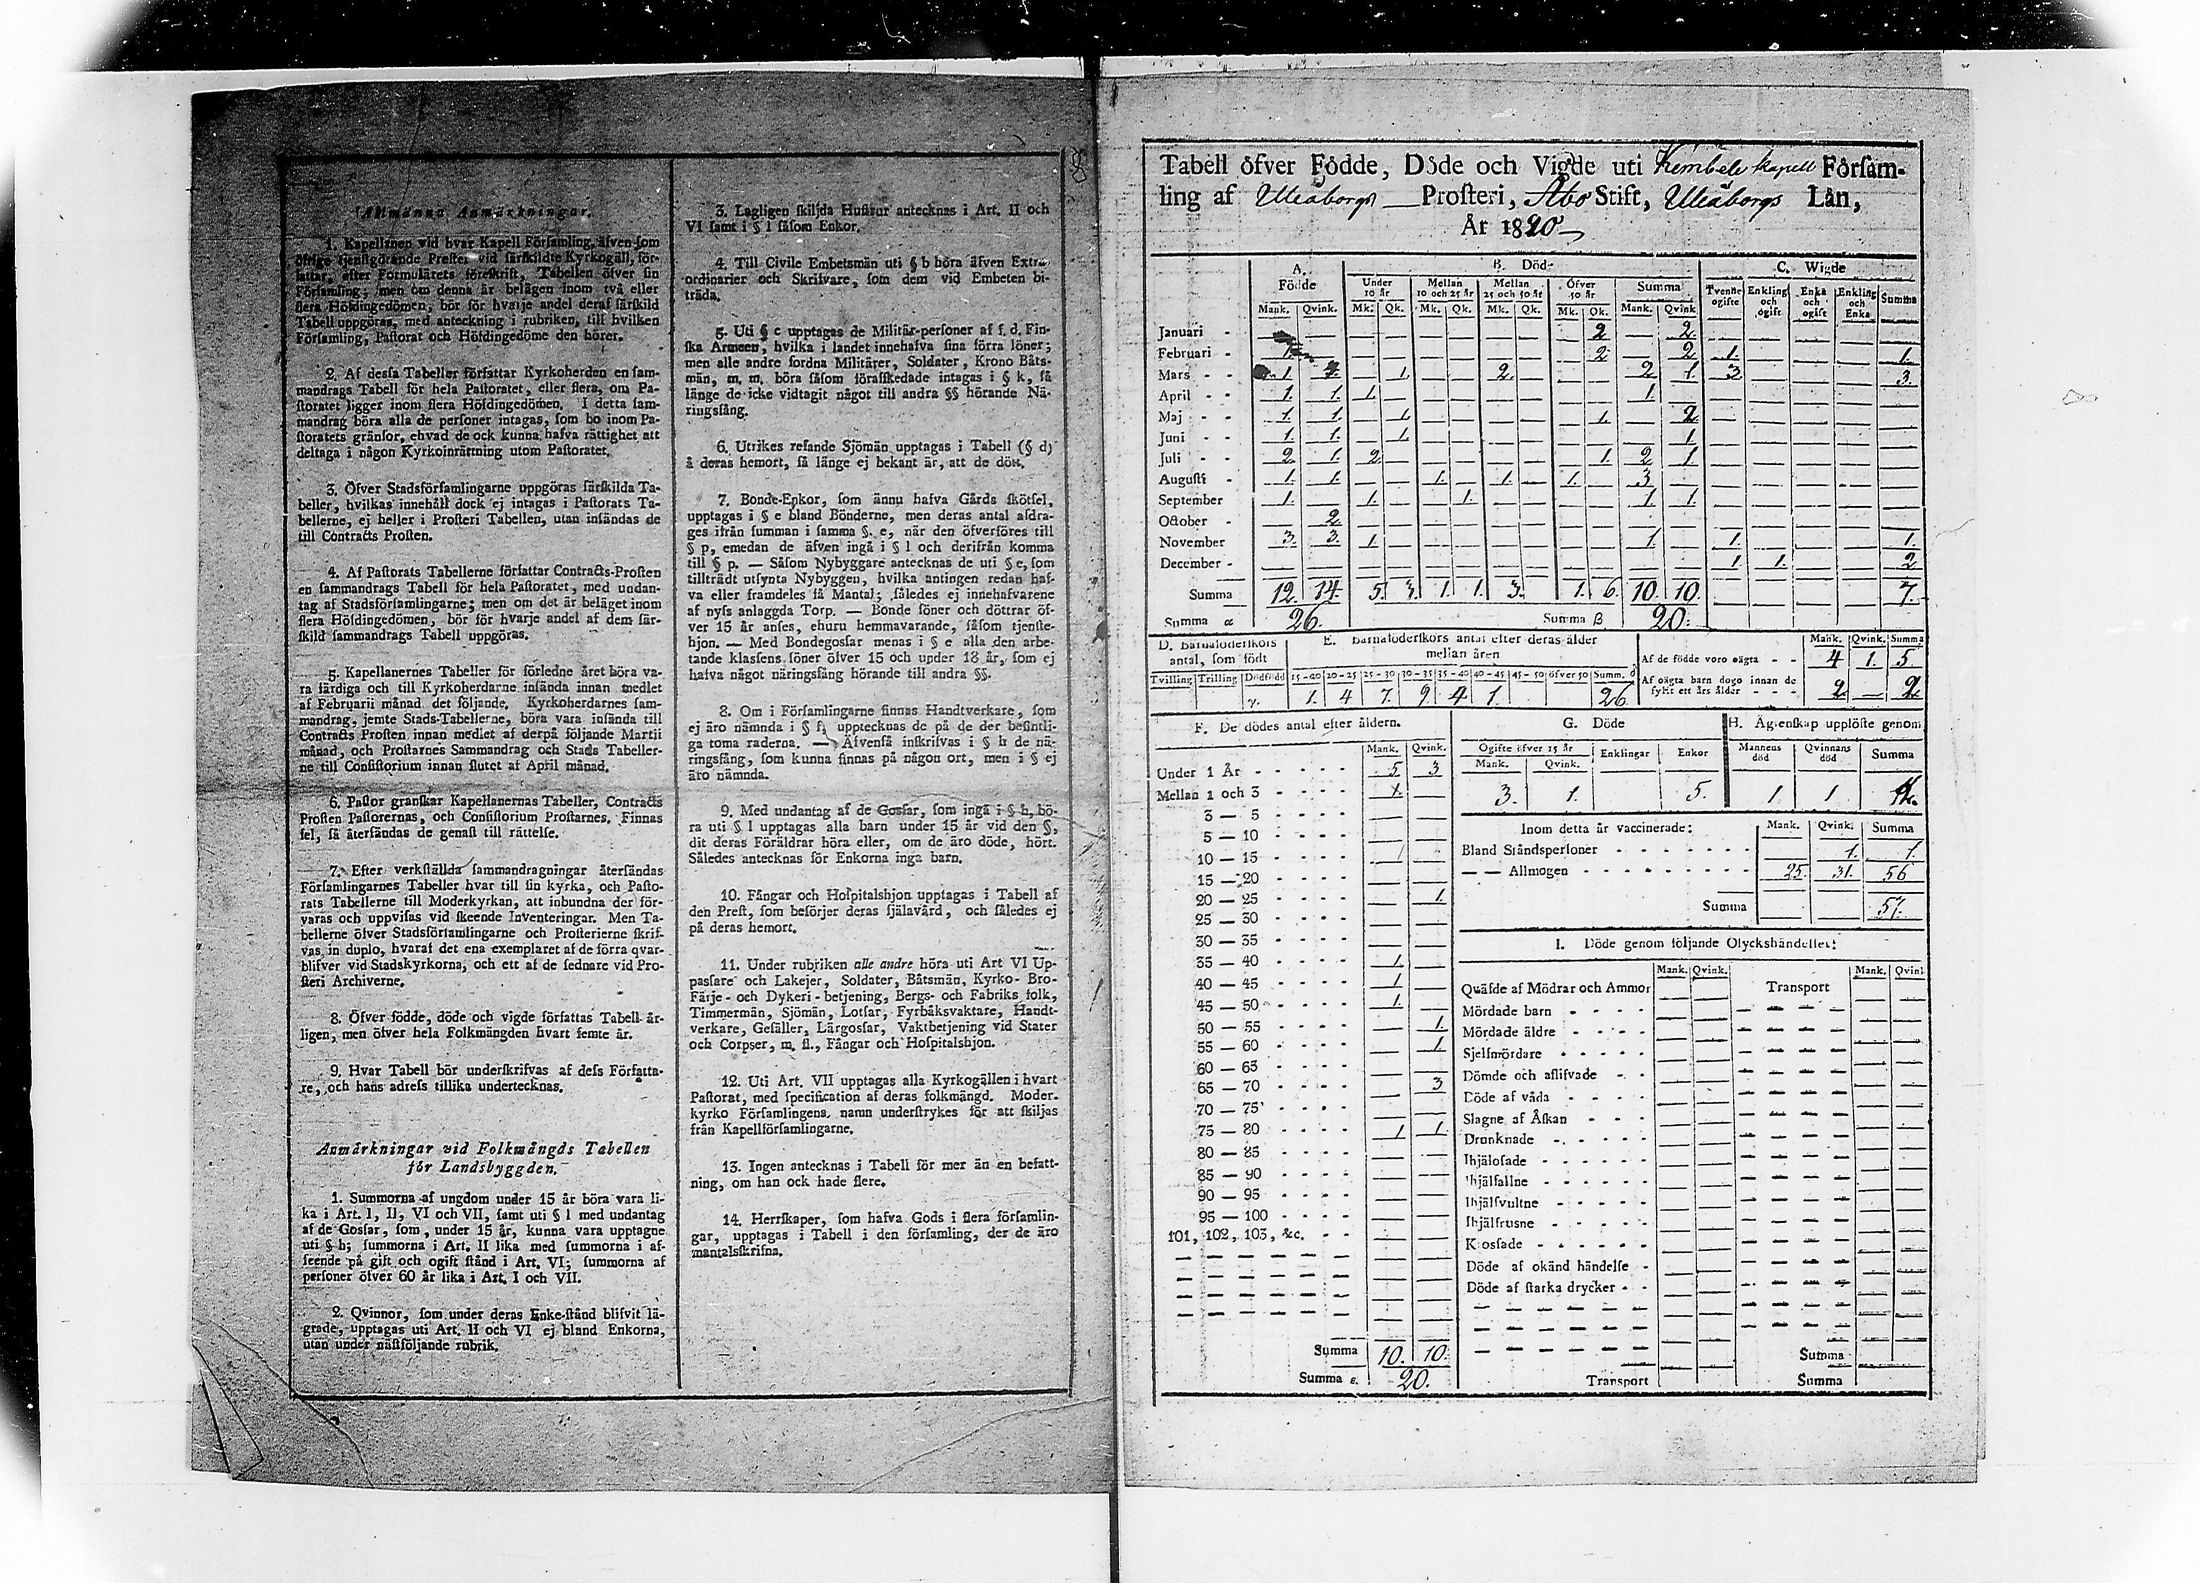 Allmänna Anmärkningar.
1. Kapellanen vid hvar Kapell Församling, äfven som
öfrige tjenstgörande Prester vid särskildte Kyrkogäll, för-
fattar, efter Formulärets föreskrift, Tabellen öfver sin
Församling; men om denna är belägen inom två eller
flera Höfdingedömen, bör för hvarje andel deraf särskild
Tabell uppgöras, med anteckning i rubriken, till hvilken
Församling, Pastorat och Höfdingedöme den hörer.
2. Af dessa Tabeller författar Kyrkoherden en sam-
mandrags Tabell för hela Pastoratet, eller flera, om Pa-
storatet ligger inom flera Höfdingedömen. I detta sam-
mandrag böra alla de personer intagas, som bo inom Pa-
storatets gränsor, ehvad de ock kunna hafva rättighet att
deltaga i någon Kyrkoinrättning utom Pastoratet.
3. Öfver Stadsförsamlingarne uppgöras särskilda Ta-
beller, hvilkas innehåll dock ej intages i Pastorats Ta-
bellerne, ej heller i Prosteri Tabellen, utan insändas de
till Contracts Prosten.
4. Af Pastorats Tabellerne författar Contracts-Prosten
en sammandrags Tabell för hela Pastoratet, med undan-
tag af Stadsförsamlingarne; men om det är beläget inom
flera Höfdingedömen, bör för hvarje andel af dem sär-
skild sammandrags Tabell uppgöras.
5. Kapellanernes Tabeller för förledne året böra va-
ra färdiga och till Kyrkoherdarne insända innan medlet
af Februarii månad det följande. Kyrkoherdarnes sam-
mandrag, jemte Stads-Tabellerne, böra vara insända till
Contracts Prosten innan medlet af derpå följande Martii
månad, och Prostarnes Sammandrag och Stads Tabeller-
ne till Consistorium innan slutet af April månad.
6. Pastor granskar Kapellanernas Tabeller, Contracts
Prosten Pastorernas, och Consistorium Prostarnes. Finnas
fel, så återsändas de genast till rättelse.
7. Efter verkställda sammandragningar återsändas
Församlingarnes Tabeller hvar till sin kyrka, och Pasto-
rats Tabellerne till Moderkyrkan, att inbundna der för-
varas och uppvisas vid skeende Inventeringar. Men Ta-
bellerne öfver Stadsförsamlingarne och Prosterierne skrif-
vas in duplo, hvaraf det ena exemplaret af de förra qvar-
blifver vid Stadskyrkorna, och ett af de sednare vid Pro-
steri Archiverne.
8. Öfver födde, döde och vigde författas Tabell år-
ligen, men öfver hela Folkmängden hvart femte år.
9. Hvar Tabell bör underskrifvas af dess Författa-
re, och hans adress tillika undertecknas.
Anmärkningar vid Folkmängds Tabellen
för Landsbyggden.
1. Summorna af ungdom under 15 år böra vara li-
ka i Art. I, II, VI och VII, samt uti § l med undantag
af de Gossar, som, under 15 år, kunna vara upptagne
uti § h; summorna i Art. II lika med summorna i af-
seende på gift och ogift stånd i Art. VI; summorna af
personer öfver 60 år lika i Art. I och VII.
2. Qvinnor, som under deras Enke-stånd blifvit lä-
grade, upptagas uti Art. II och VI ej bland Enkorna,
utan under nästföljande rubrik.
3. Lagligen skiljda Hustrur antecknas i Art. II och
VI samt i § l såsom Enkor.
4. Till Civile Embetsmän uti § b höra äfven Extra
ordinarier och Skrifvare, som dem vid Embeten bi-
träda.
5. Uti § c upptagas de Militär-personer af f. d. Fin-
ska Armeen, hvilka i landet innehafva sina förra löner;
men alle andre fordna Militärer, Soldater, Krono Båts-
män, m. m. böra såsom förafskedade intagas i § k, så
länge de icke vidtagit något till andra §§ hörande Nä-
ringsfång.
6. Utrikes resande Sjömän upptagas i Tabell (§ d)
å deras hemort, så länge ej bekant är, att de dött.
7. Bonde-Enkor, som ännu hafva Gårds skötsel,
upptagas i § e bland Bönderne, men deras antal afdra-
ges ifrån summan i samma §. e, när den öfverföres till
§ p, emedan de äfven ingå i § l och derifrån komma
till § p. — Såsom Nybyggare antecknas de uti § e, som
tillträdt utsynta Nybyggen, hvilka antingen redan haf-
va eller framdeles få Mantal; således ej innehafvarene
af nyss anlaggda Torp. — Bonde söner och döttrar öf-
ver 15 år anses, ehuru hemmavarande, såsom tjenste-
hjon. — Med Bondegossar menas i § e alla den arbe-
tande klassens söner öfver 15 och under 18 år, som ej
hafva något näringsfång hörande till andra §§.
8. Om i Församlingarne finnas Handtverkare, som
ej äro nämnda i § f, upptecknas de på de der befintli-
ga toma raderna. — Äfvenså inskrifvas i § h de nä-
ringsfång, som kunna finnas på någon ort, men i § ej
äro nämnda.
9. Med undantag af de Gossar, som ingå i § h, bö-
ra uti § l upptagas alla barn under 15 år vid den §,
dit deras Föräldrar höra eller, om de äro döde, hört.
Således antecknas för Enkorna inga barn.
10. Fångar och Hospitalshjon upptagas i Tabell af
den Prest, som besörjer deras själavård, och således ej
på deras hemort.
11. Under rubriken alle andre höra uti Art VI Up-
passare och Lakejer, Soldater, Båtsmän, Kyrko- Bro-
Färje- och Dykeri-betjening, Bergs- och Fabriks folk,
Timmermän, Sjömän, Lotsar, Fyrbåksvaktare, Handt-
verkare, Gesäller, Lärgossar, Vaktbetjening vid Stater
och Corpser, m. fl., Fångar och Hospitalshjon.
12. Uti Art. VII upptagas alla Kyrkogällen i hvart
Pastorat, med specification af deras folkmängd. Moder-
kyrko Församlingens namn understrykes för att skiljas
från Kapellförsamlingarne.
13. Ingen antecknas i Tabell för mer än en befatt-
ning, om han ock hade flere.
14. Herrskaper, som hafva Gods i flera församlin-
gar, upptagas i Tabell i den församling, der de äro
mantalsskrifna.
Tabell öfver Födde, Döde och Vigde uti Kembele kapell Församˍ
ling af Uleåborgs Prosteri, Åbo Stift, Uleåborgs Län,
År 1820
A. Födde B. Döde C. Wigde
Under 10 år Mellan 10 och 25 år Mellan 25 och 50 år Öfver 50 år Summa Tvenne ogifte Enkling och ogift Enka och ogift Enkling och Enka Summa
Mank. Qvink. Mk. Qk. Mk. Qk. Mk. Qk. Mk. Qk. Mank. Qvink
Januari - 2 2
Februari - 2 2 1. 1.
Mars - - 1 1. 2 2 1. 3 3.
April - - 1 1. 1. 1.
Maj - - 1. 1. 1. 1. 2
Juni - - 1. 1. 1. 1.
Juli - - 2 1. 2 1. 2 1.
Augusti - 1. 1. 1. 1. 1. 3
September 1. 1. 1. 1. 1.
October - 2
November 3. 3. 1. 1. 1. 1.
December - 1 1. 2
Summa 12. 14. 5 3 1. 1. 3. 1. 6. 10 10. 7.
Summa α 26. Summa β 20.
D. Barnaföderskors antal, som födt
Tvilling Trilling Dödfödd
E. Barnaföderskors antal efter deras ålder
mellan åren
15-20 20-25 25-30 30-35 35-40 40-45 45-50 öfver 50 Summ. δ
1. 4 7. 9 4 1. 26
Mank. Qvink. Summa
Af de födde voro oägta - - 4 1. 5
Af oägta barn dogo innan de
fyllt ett års ålder - - - 2 — 2
F. De dödes antal efter åldern.
Mank. Qvink.
Under 1 År - - - - - 5 3
Mellan 1 och 3 - - - - 1.
3 — 5 - - - -
5 — 10 - - - -
10 — 15 - - - -
15 — 20 - - - -
20 — 25 - - - - 1.
25 — 30 - - - -
30 — 35 - - - -
35 — 40 - - - - 1
40 — 45 - - - - 1
45 — 50 - - - - 1.
50 — 55 - - - - 1.
55 — 60 - - - - 1.
60 — 65 - - - -
65 — 70 - - - - 3
70 — 75 - - - -
75 — 80 - - - - 1 1.
80 — 85 - - - -
85 — 90 - - - -
90 — 95 - - - -
95 — 100 - - - -
101, 102, 103, &c. - -
Summa 10. 10.
Summa ε. 20.
G. Döde
Ogifte öfver 15 år Enklingar Enkor
Mank. Qvink.
3. 1. 5.
H. Ägtenskap upplöste genom
Mannens död Qvinnans död Summa
1. 1
Inom detta år vaccinerade: Mank. Qvink. Summa
Bland Ståndspersoner - - - - - - - 1. 1.
— — Allmogen - - - - - - - - - 25. 31. 56
Summa 57.
I. Döde genom följande Olyckshändelser:
Mank. Qvink. Mank. Qvink
Quäfde af Mödrar och Ammor Transport
Mördade barn - - - -
Mördade äldre - - - -
Sjelfmördare - - - - -
Dömde och aflifvade - -
Döde af våda - - - -
Slagne af Åskan - - -
Drunknade - - - - -
Ihjälosade - - - - -
Ihjälfallne - - - - -
Ihjälsvultne - - - -
Ihjälfrusne - - - - -
Krossade - - - - - -
Döde af okänd händelse -
Döde af starka drycker - -
Summa
Transport Summa